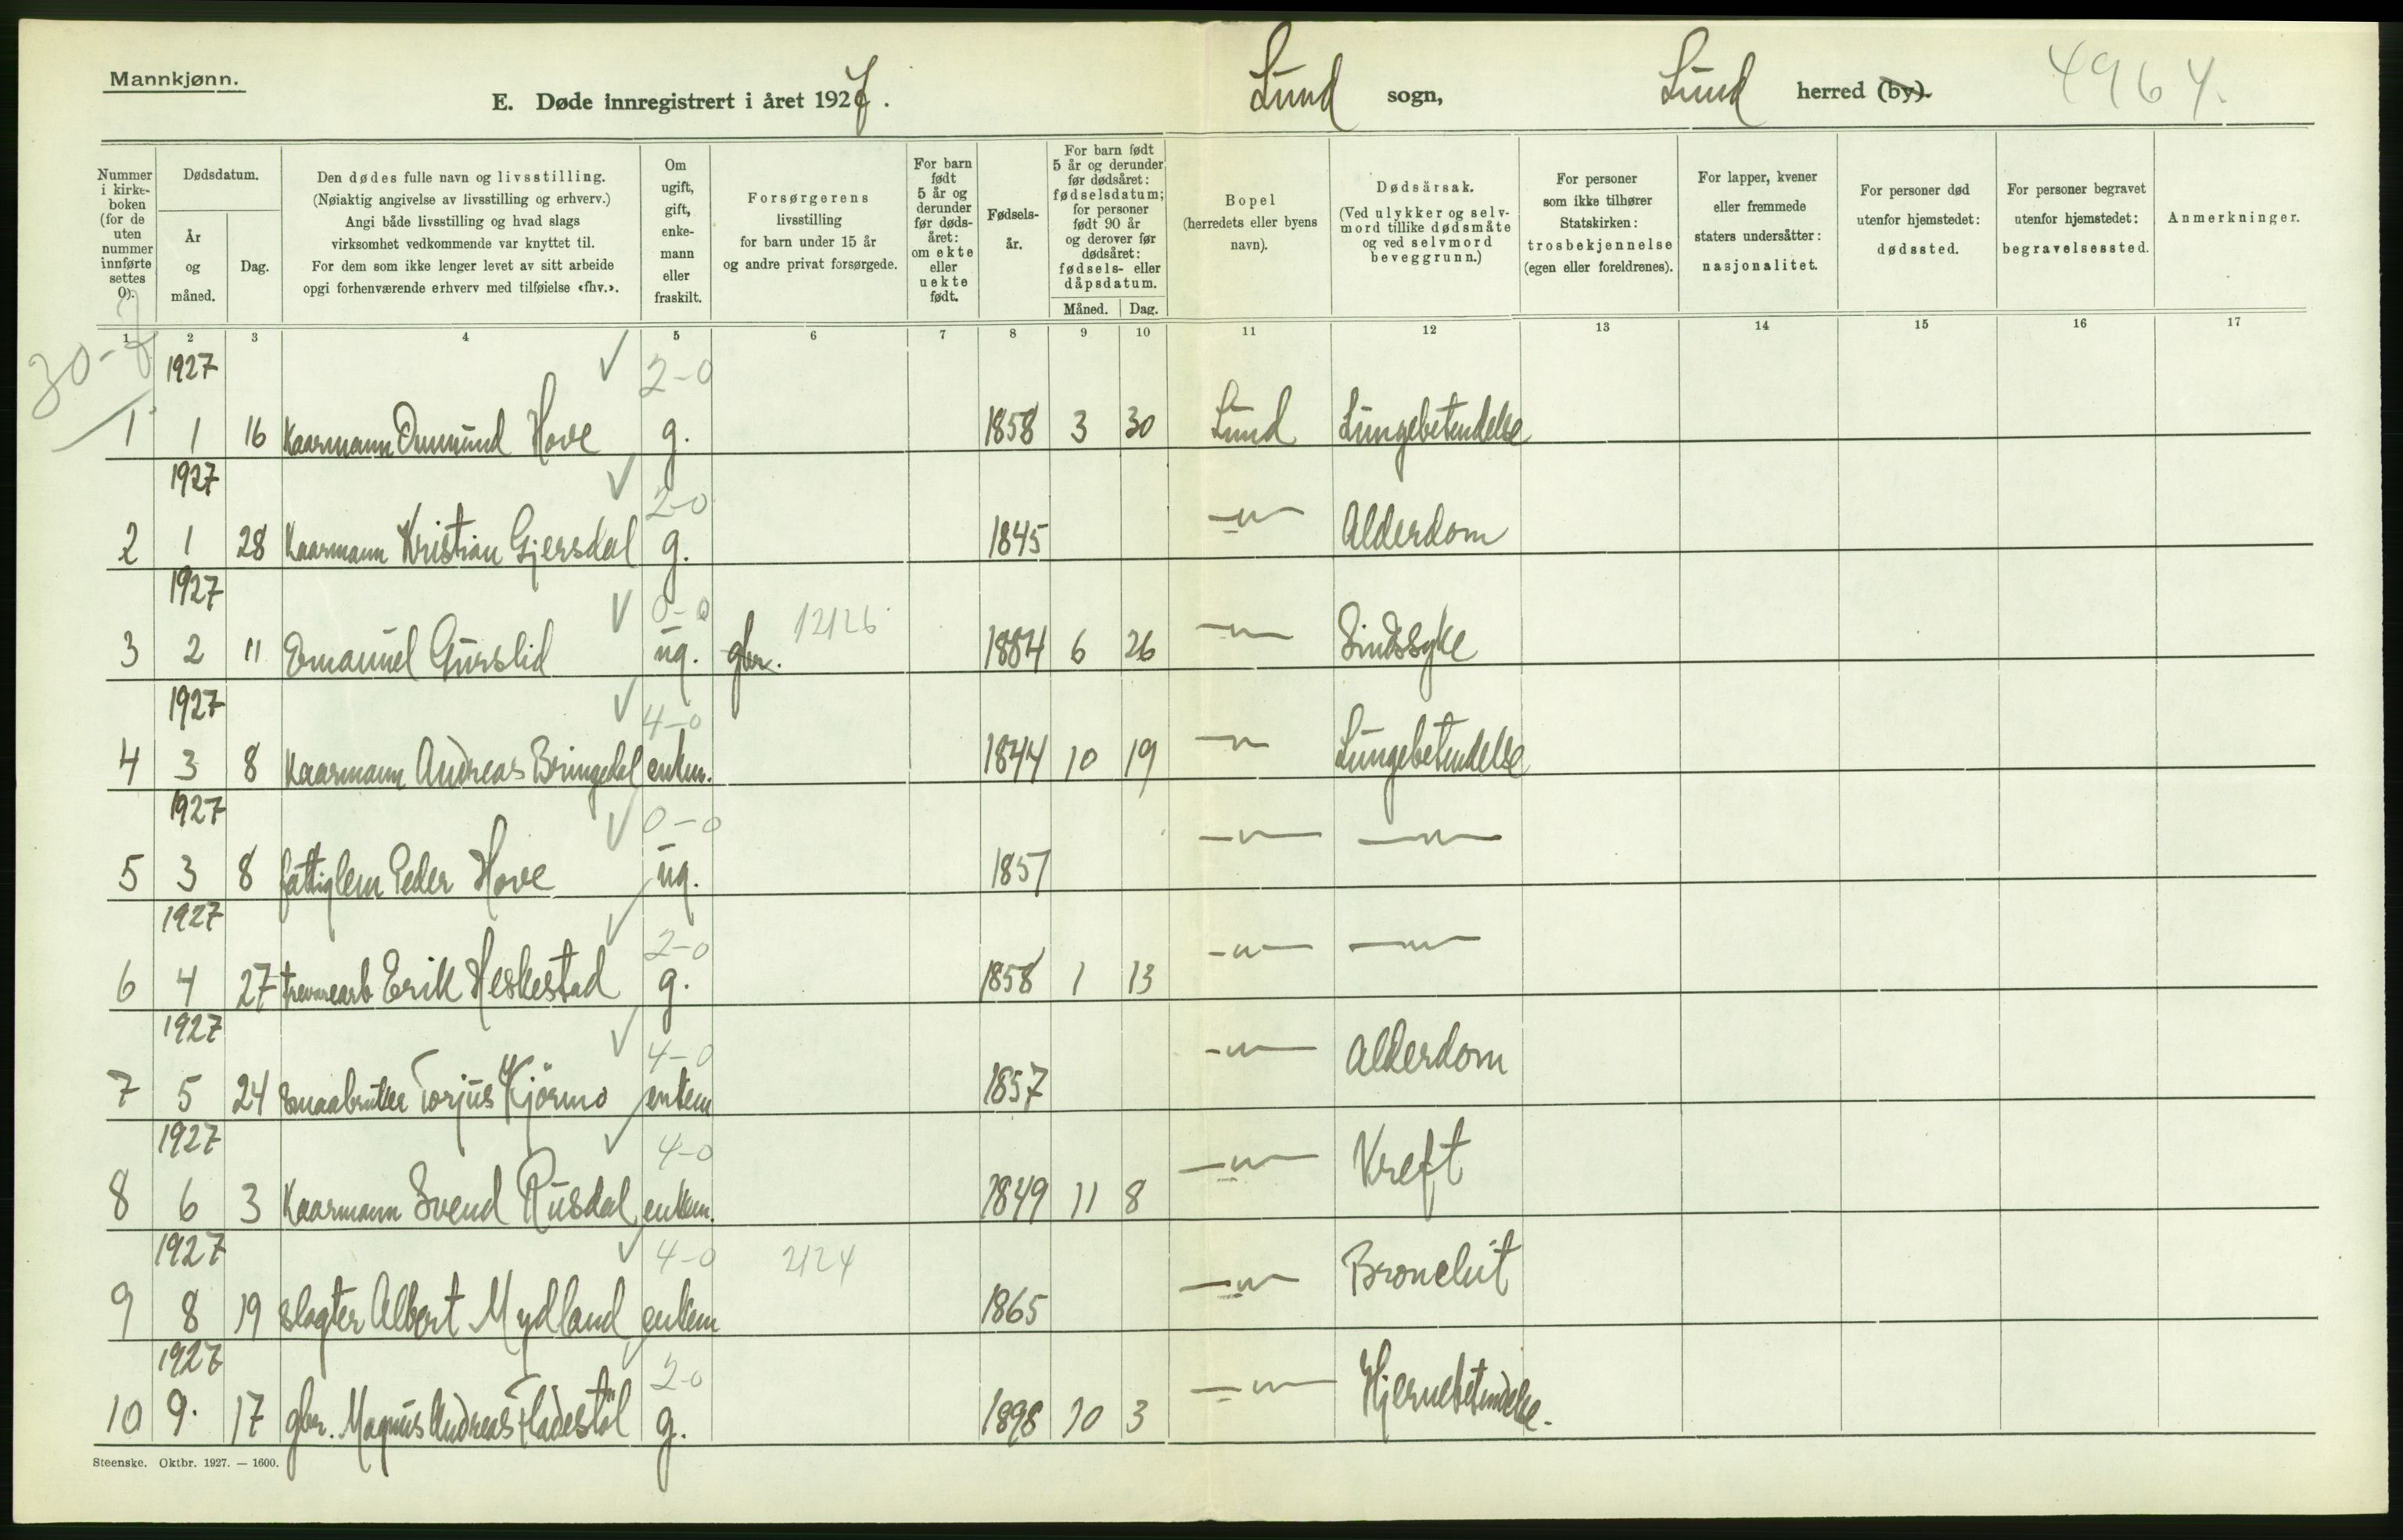 Mannkjønn.
E. Døde innregistrert i året 1927.
Lund sogn, Lund herred (by).
4964.
Nummer i kirke-boken (for de uten nummer innførte settes 0).
Dødsdatum.
År og måned.
Dag.
Den dødes fulle navn og livsstilling.
(Nøiaktig angivelse av livsstilling og erhverv.)
Angi både livsstilling og hvad slags
virksomhet vedkommende var knyttet til.
For dem som ikke lenger levet av sitt arbeide
opgi forhenværende erhverv med tilføielse «fhv.».
Om ugift, gift, enke-mann eller fraskilt.
Forsørgerens
livsstilling
for barn under 15 år
og andre privat forsørgede.
For barn født 5 år og derunder før døds-året: om ekte eller uekte født.
Fødsels-år.
For barn født 5 år og derunder før dødsåret: fødselsdatum; for personer født 90 år og derover før dødsåret: fødsels- eller dåpsdatum.
Måned. Dag.
Bopel
(herredets eller byens navn).
Dødsårsak.
(Ved ulykker og selv-mord tillike dødsmåte og ved selvmord beveggrunn.)
For personer som ikke tilhører Statskirken: trosbekjennelse (egen eller foreldrenes).
For lapper, kvener eller fremmede staters undersåtter: nasjonalitet.
For personer død utenfor hjemstedet: dødssted.
For personer begravet utenfor hjemstedet: begravelsessted.
Anmerkninger.
1 2 3 4 5 6 7 8 9 10 11 12 13 14 15 16 17
30-7
1927 2-0
1 1 16 Kaarmann Ommund Hove g. 1858 3 30 Lund Lungebetendelse
1927 2-0
2 1 28 Kaarmann Kristian Gjersdal g. 1845 -"- Alderdom
1927 0-0 12126
3 2 11 Emanuel Gurslid ug. gbr. 1884 6 26 -"- Sindssyke
1927 4-0
4 3 8 Kaarmann Andreas Bringedal enkm. 1844 10 19 -"- Lungebetendelse
1927 0-0
5 3 8 fattiglem Peder Hove ug. 1857 -"- -"-
1927 2-0
6 4 27 trevarearb Erik Heskestad g. 1858 1 13 -"- -"-
1927 4-0
7 5 24 Smaabruker Torjus Kjörmo enkem 1857 -"- Alderdom
1927 4-0
8 6 3 Kaarmann Svend Rusdal enkem. 1849 11 8 -"- Kreft
1927 4-0 2124
9 8 19 slagter Albert Mydland enkem 1865 -"- Bronchit
1927 2-0
10 9. 17 gbr. Magnus Andreas Fladestöl g. 1898 10 3 -"- Hjernebetendelse.
Steenske. Oktbr. 1927. — 1600.